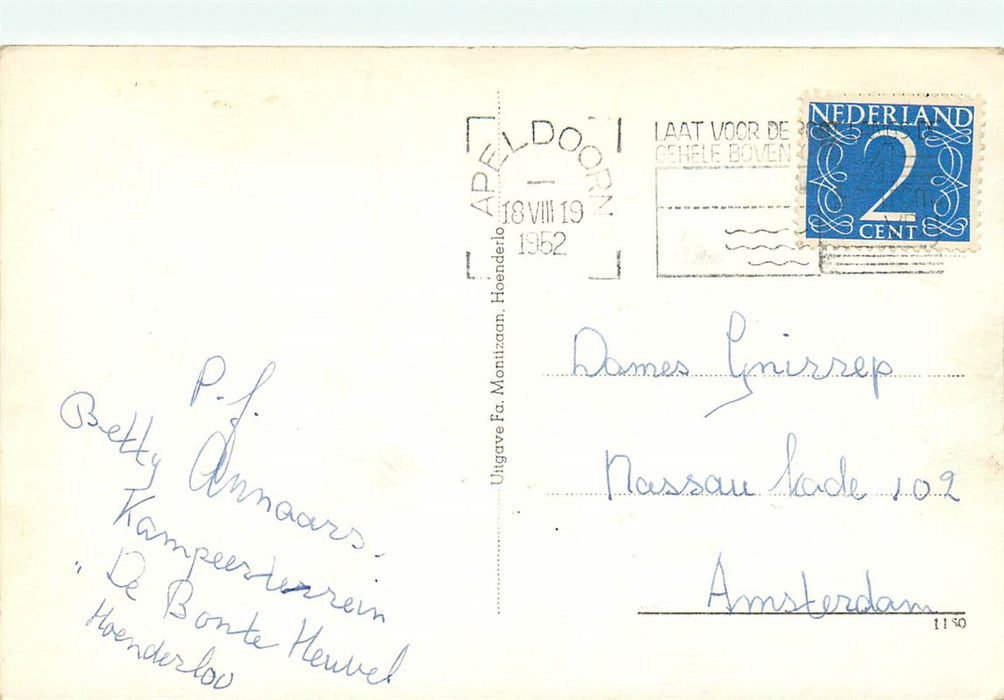 NEDERLAND
2
CENT
APELDOORN
18 VIII 19
1952
LAAT VOOR DE
GEHELE BOVEN
Uitgave Fa. Montizaan, Hoenderlo
P.J.
Betty Annaars.
Kampeerterrein
" De Bonte Heuvel
Hoenderloo
Dames Gnirrep
Nassau kade 102
Amsterdam
1150